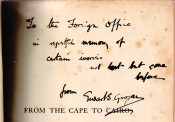 To the Foreign Office
in memory of
certain words
not lost but gone
before
from Ewart S. Grogan
FROM THE CAPE TO CAIRO